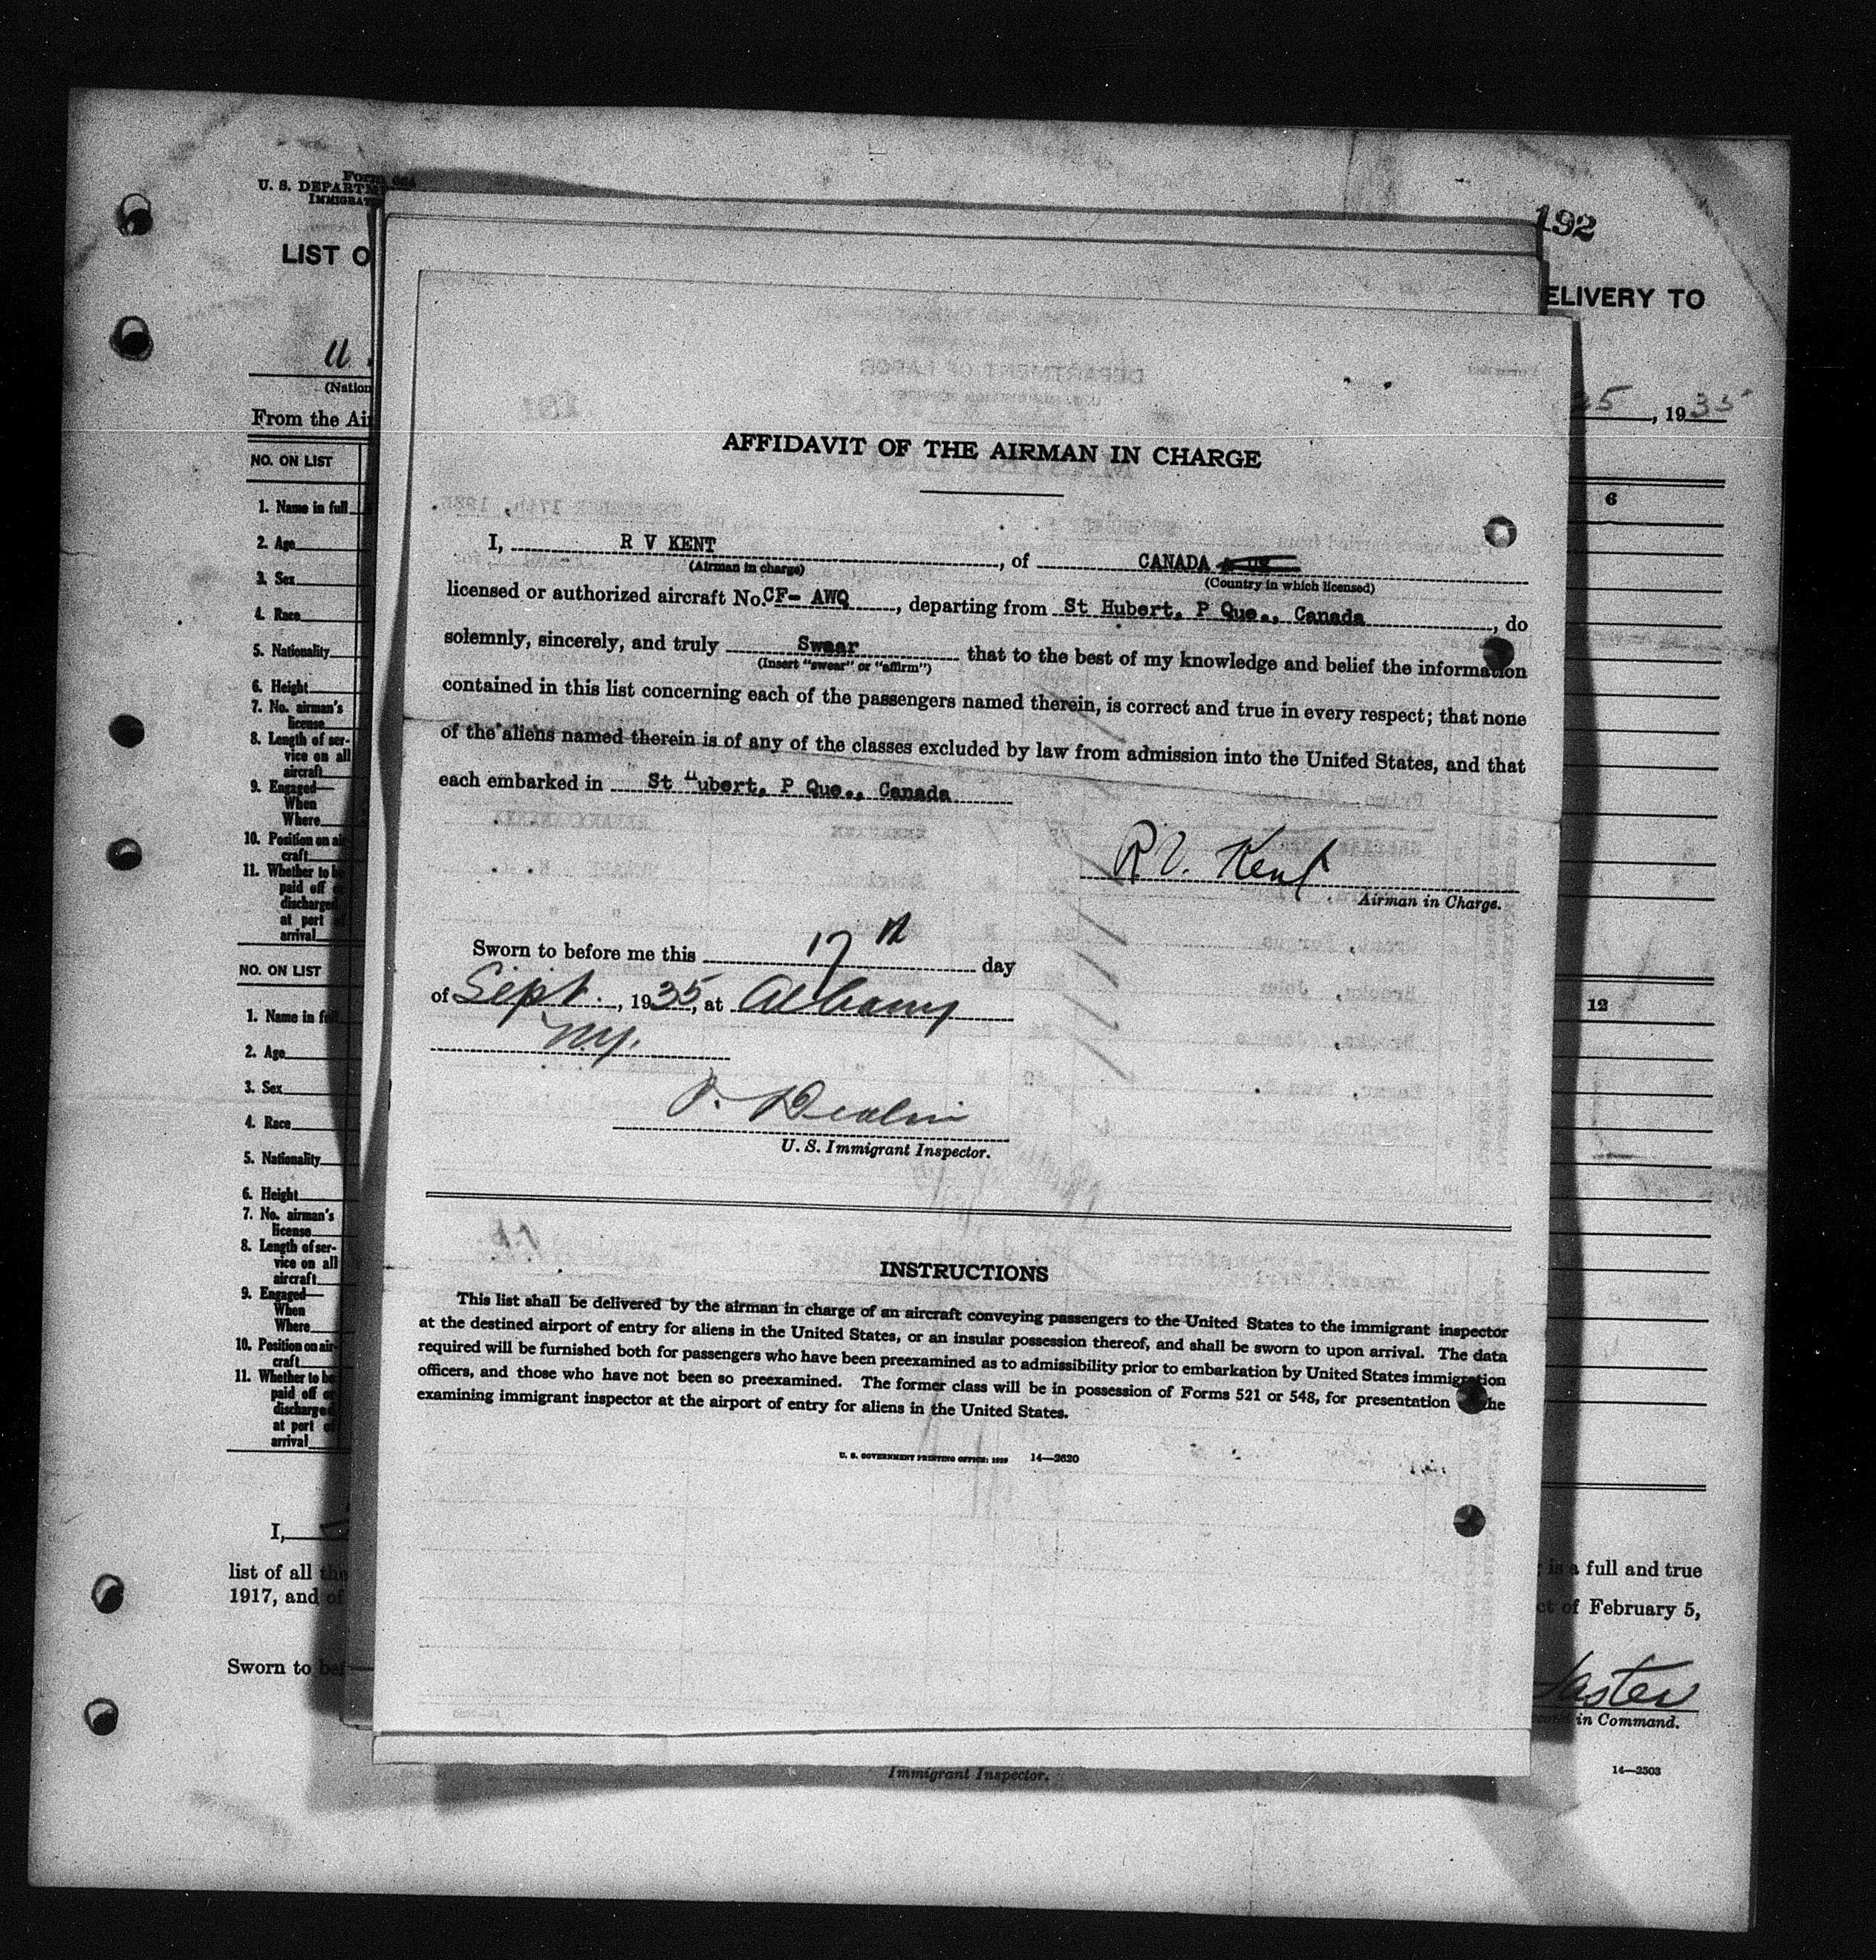 Form
U. S. DEPARTM
IMMIGRAT
192
LIST O
ELIVERY TO
U.
(Nation
From the Air
25, 1935
NO. ON LIST
6
1. Name in full
2. Age
3. Sex
4. Race
5. Nationality
6. Height
7. No. airman's
license
8. Length of ser-
vice on all
aircraft
9. Engaged—
When
Where
10. Position on air
craft
11. Whether to be
paid off or
discharged
at port of
arrival
NO. ON LIST
12
1. Name in full
2. Age
3. Sex
4. Race
5. Nationality
6. Height
7. No. airman's
license
8. Length of ser-
vice on all
aircraft
9. Engaged—
When
Where
10. Position on air-
craft
11. Whether to be
paid off or
discharged
at port of
arrival
I,
list of all the
is a full and true
1917, and of
ct of February 5,
Sworn to bef
in Command.
14—2503
Immigrant Inspector.
AFFIDAVIT OF THE AIRMAN IN CHARGE
I, R V KENT, of CANADA
(Airman in charge) (Country in which licensed)
licensed or authorized aircraft No. CF- AWQ, departing from St Hubert, P Que., Canada, do
solemnly, sincerely, and truly Swear that to the best of my knowledge and belief the information
(Insert "swear" or "affirm")
contained in this list concerning each of the passengers named therein, is correct and true in every respect; that none
of the aliens named therein is of any of the classes excluded by law from admission into the United States, and that
each embarked in St Hubert, P Que., Canada
R V. Kent
Airman in Charge.
Sworn to before me this 17th day
of Sept., 1935, at Albany
N.Y.
U. S. Immigrant Inspector.
INSTRUCTIONS
This list shall be delivered by the airman in charge of an aircraft conveying passengers to the United States to the immigrant inspector
at the destined airport of entry for aliens in the United States, or an insular possession thereof, and shall be sworn to upon arrival. The data
required will be furnished both for passengers who have been preexamined as to admissibility prior to embarkation by United States immigration
officers, and those who have not been so preexamined. The former class will be in possession of Forms 521 or 548, for presentation the
examining immigrant inspector at the airport of entry for aliens in the United States.
U. S. GOVERNMENT PRINTING OFFICE: 1929 14—2620